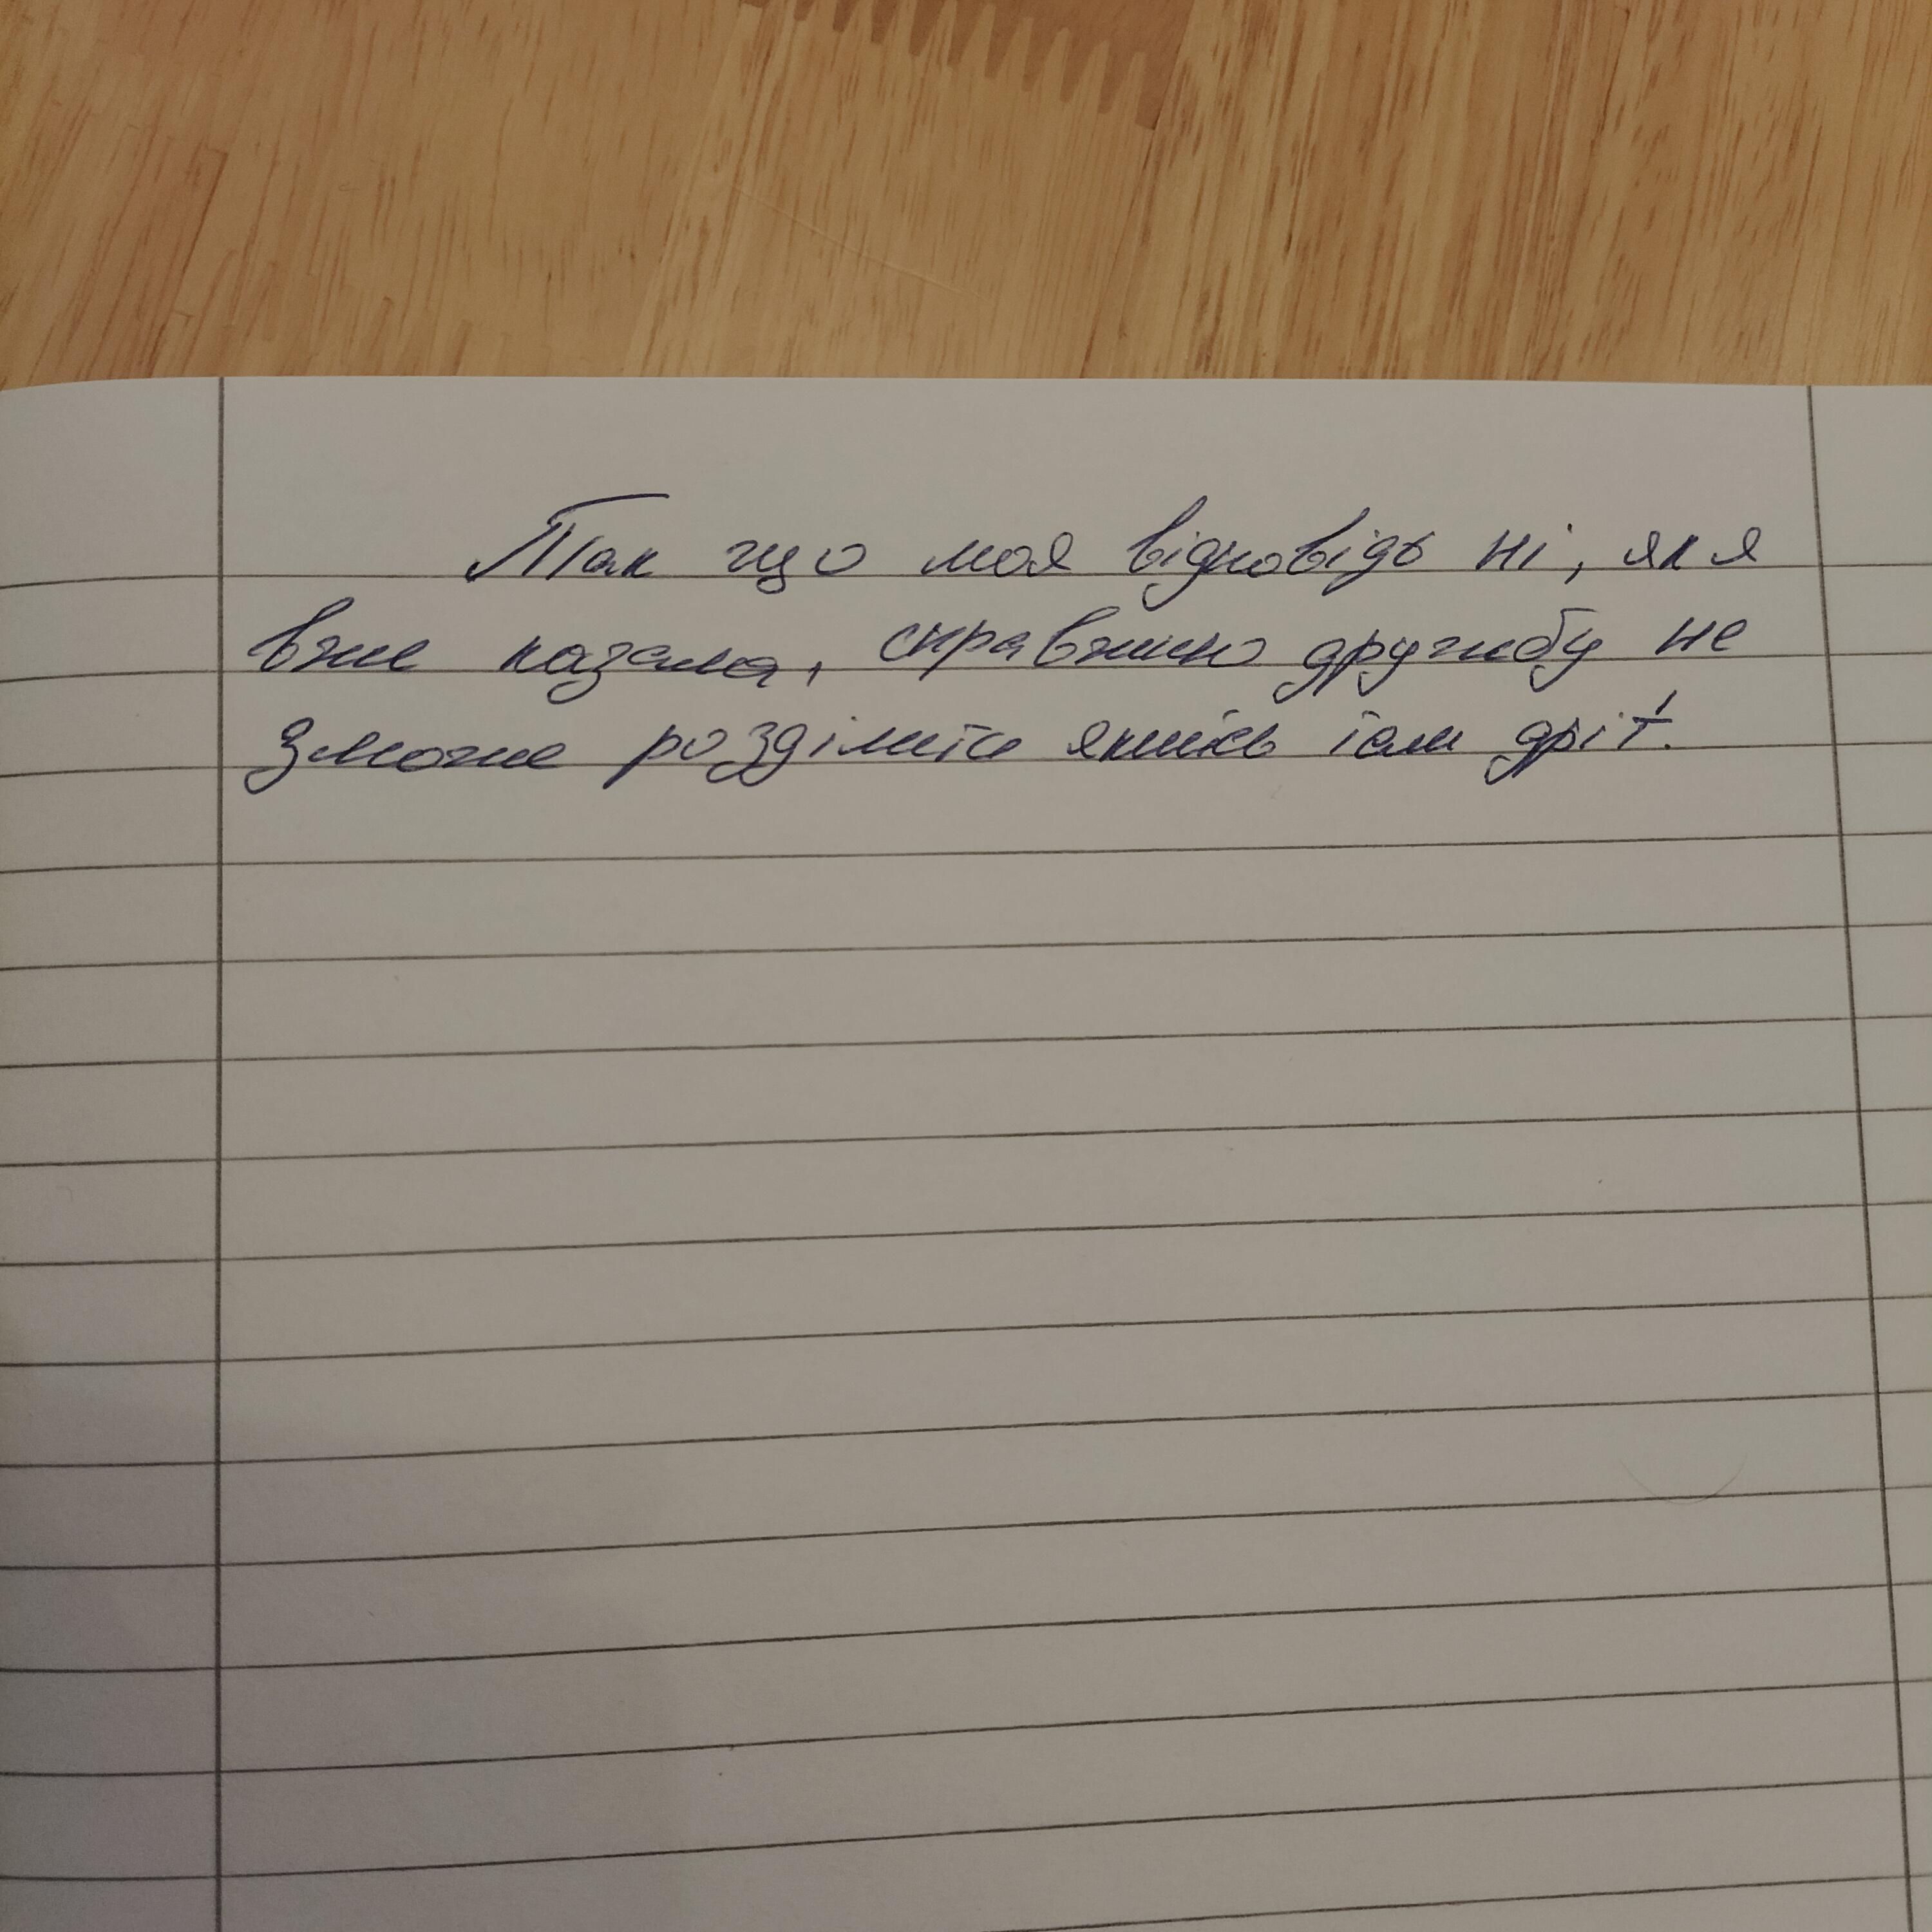 Так що моя відповідь ні, як я
вже казала, справжню дружбу не
зможе розділити якийсь там дріт.